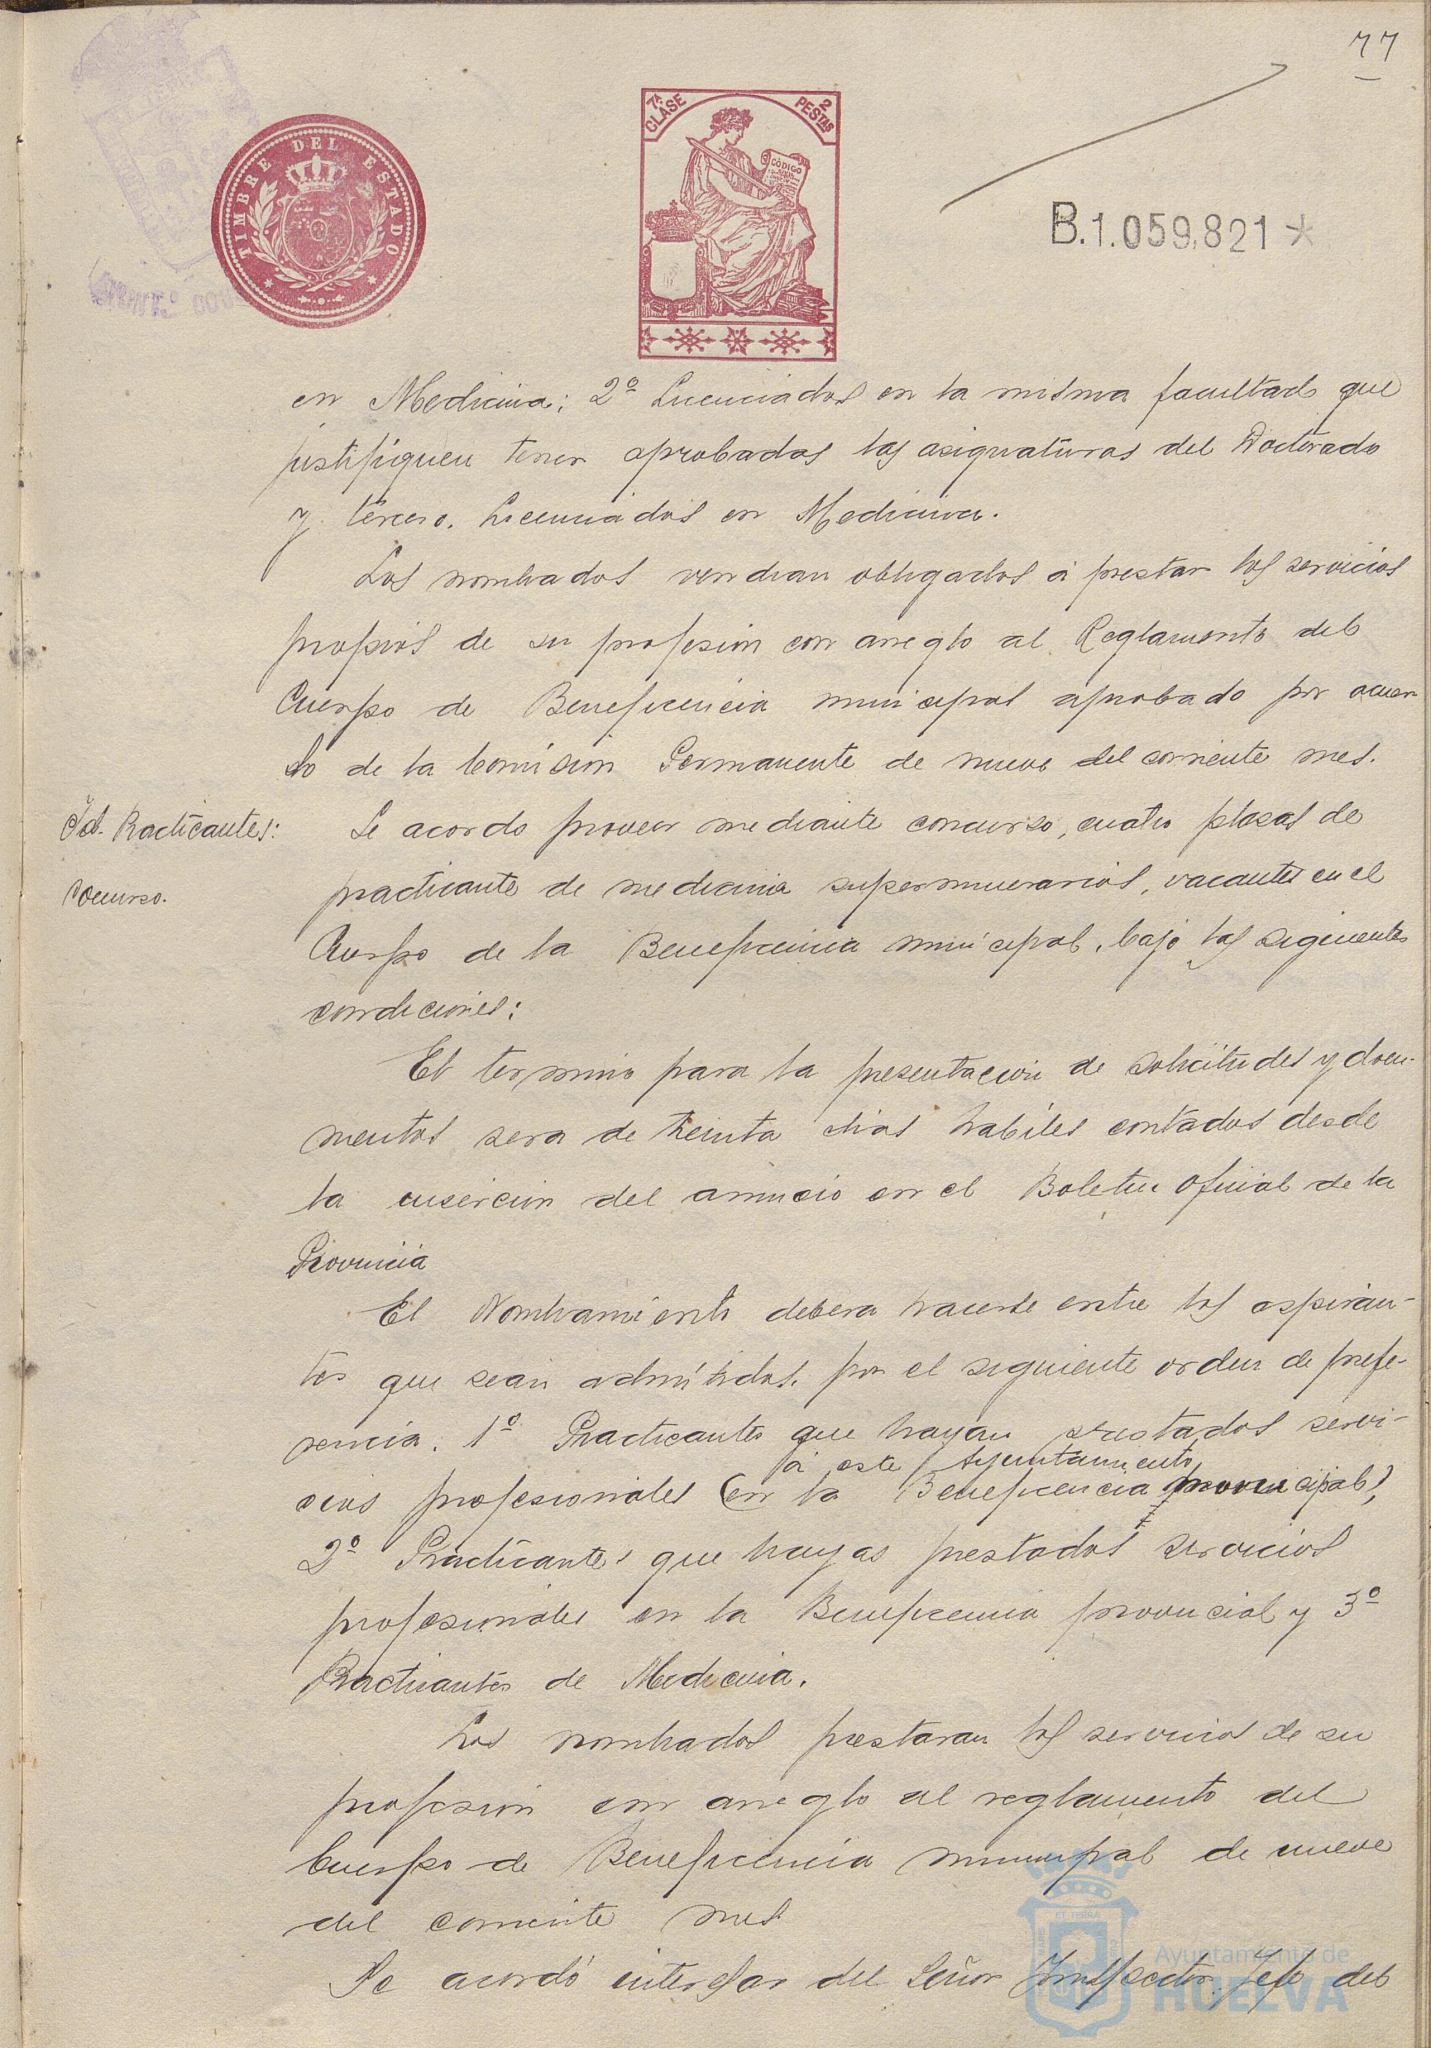 77
TIMBRE DEL ESTADO
7ª CLASE
2 PESTAS
CÓDIGO
B.1.059.821*
en Medicina; 2º Licenciados en la misma facultad que
justifiquen tener aprobadas las asignaturas del Doctorado
y tercero. Licenciados en Medicina.
Los nombrados vendran obligados á prestar los servicios
propios de su profesion con arreglo al Reglamento del
Cuerpo de Beneficencia municipal aprobado por acuer
do de la Comision Permanente de nueve del corriente mes.
Id. Practicantes:
Cocurso.
Se acordo proveer mediante concurso, cuatro plazas de
practicante de medicina supernumerarios, vacantes en el
Cuerpo de la Beneficencia municipal, bajo las siguientes
condiciones:
El termino para la presentacion de solicitudes y docu-
mentos sera de treinta dias habiles contados desde
la insercion del anuncio en el Boletin Oficial de la
Provincia
El Nombramiento debera hacerse entre los aspiran-
tes que sean admitidos, por el siguiente orden de prefe-
rencia. 1º Practicantes que hayan prestados servi-
á este Ayuntamiento
cios profesionales (en la Beneficencia municipal)
2º Practicantes que hayas prestados servicios
profesionales en la Beneficencia provincial y 3º
Practicantes de Medicina.
Los nombrados prestaran los servicios de su
profesion con arreglo al reglamento del
Cuerpo de Beneficencia municipal de nueve
del corriente mes
Se acordó interesar del Señor Inspector Jefe del
Ayuntamiento de
HUELVA